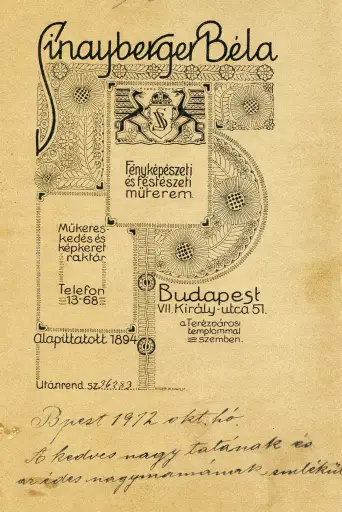 Sinayberger Béla
Fényképészeti
és festészeti
műterem.
Műkeres-
kedés és
képkeret
raktár
Telefon
13-68
Budapest
VII. Király-utca 51.
a Terézvárosi
templommal
szemben.
Alapíttatott 1894
Utánrend. sz. 26283
Bpest 1912 okt. hó.
A kedves nagy tatának és
az édes nagymamának emlékül